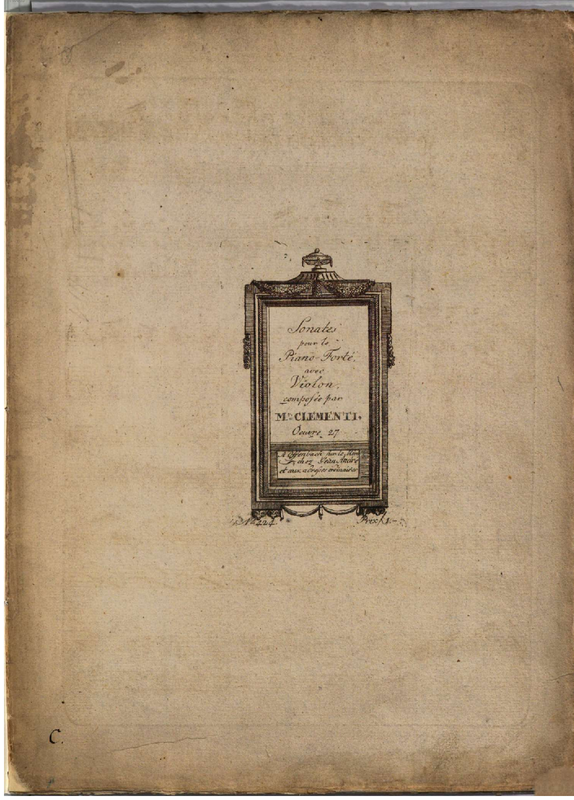 Sonates
pour le
Piano-Forté,
avec
Violon,
composée par
Mr. CLEMENTI.
Oeuvre 27
A Offenbach sur le Mein
chez Jean André
et aux adresses ordinaires
No. 424. Prix f.1.-
C.